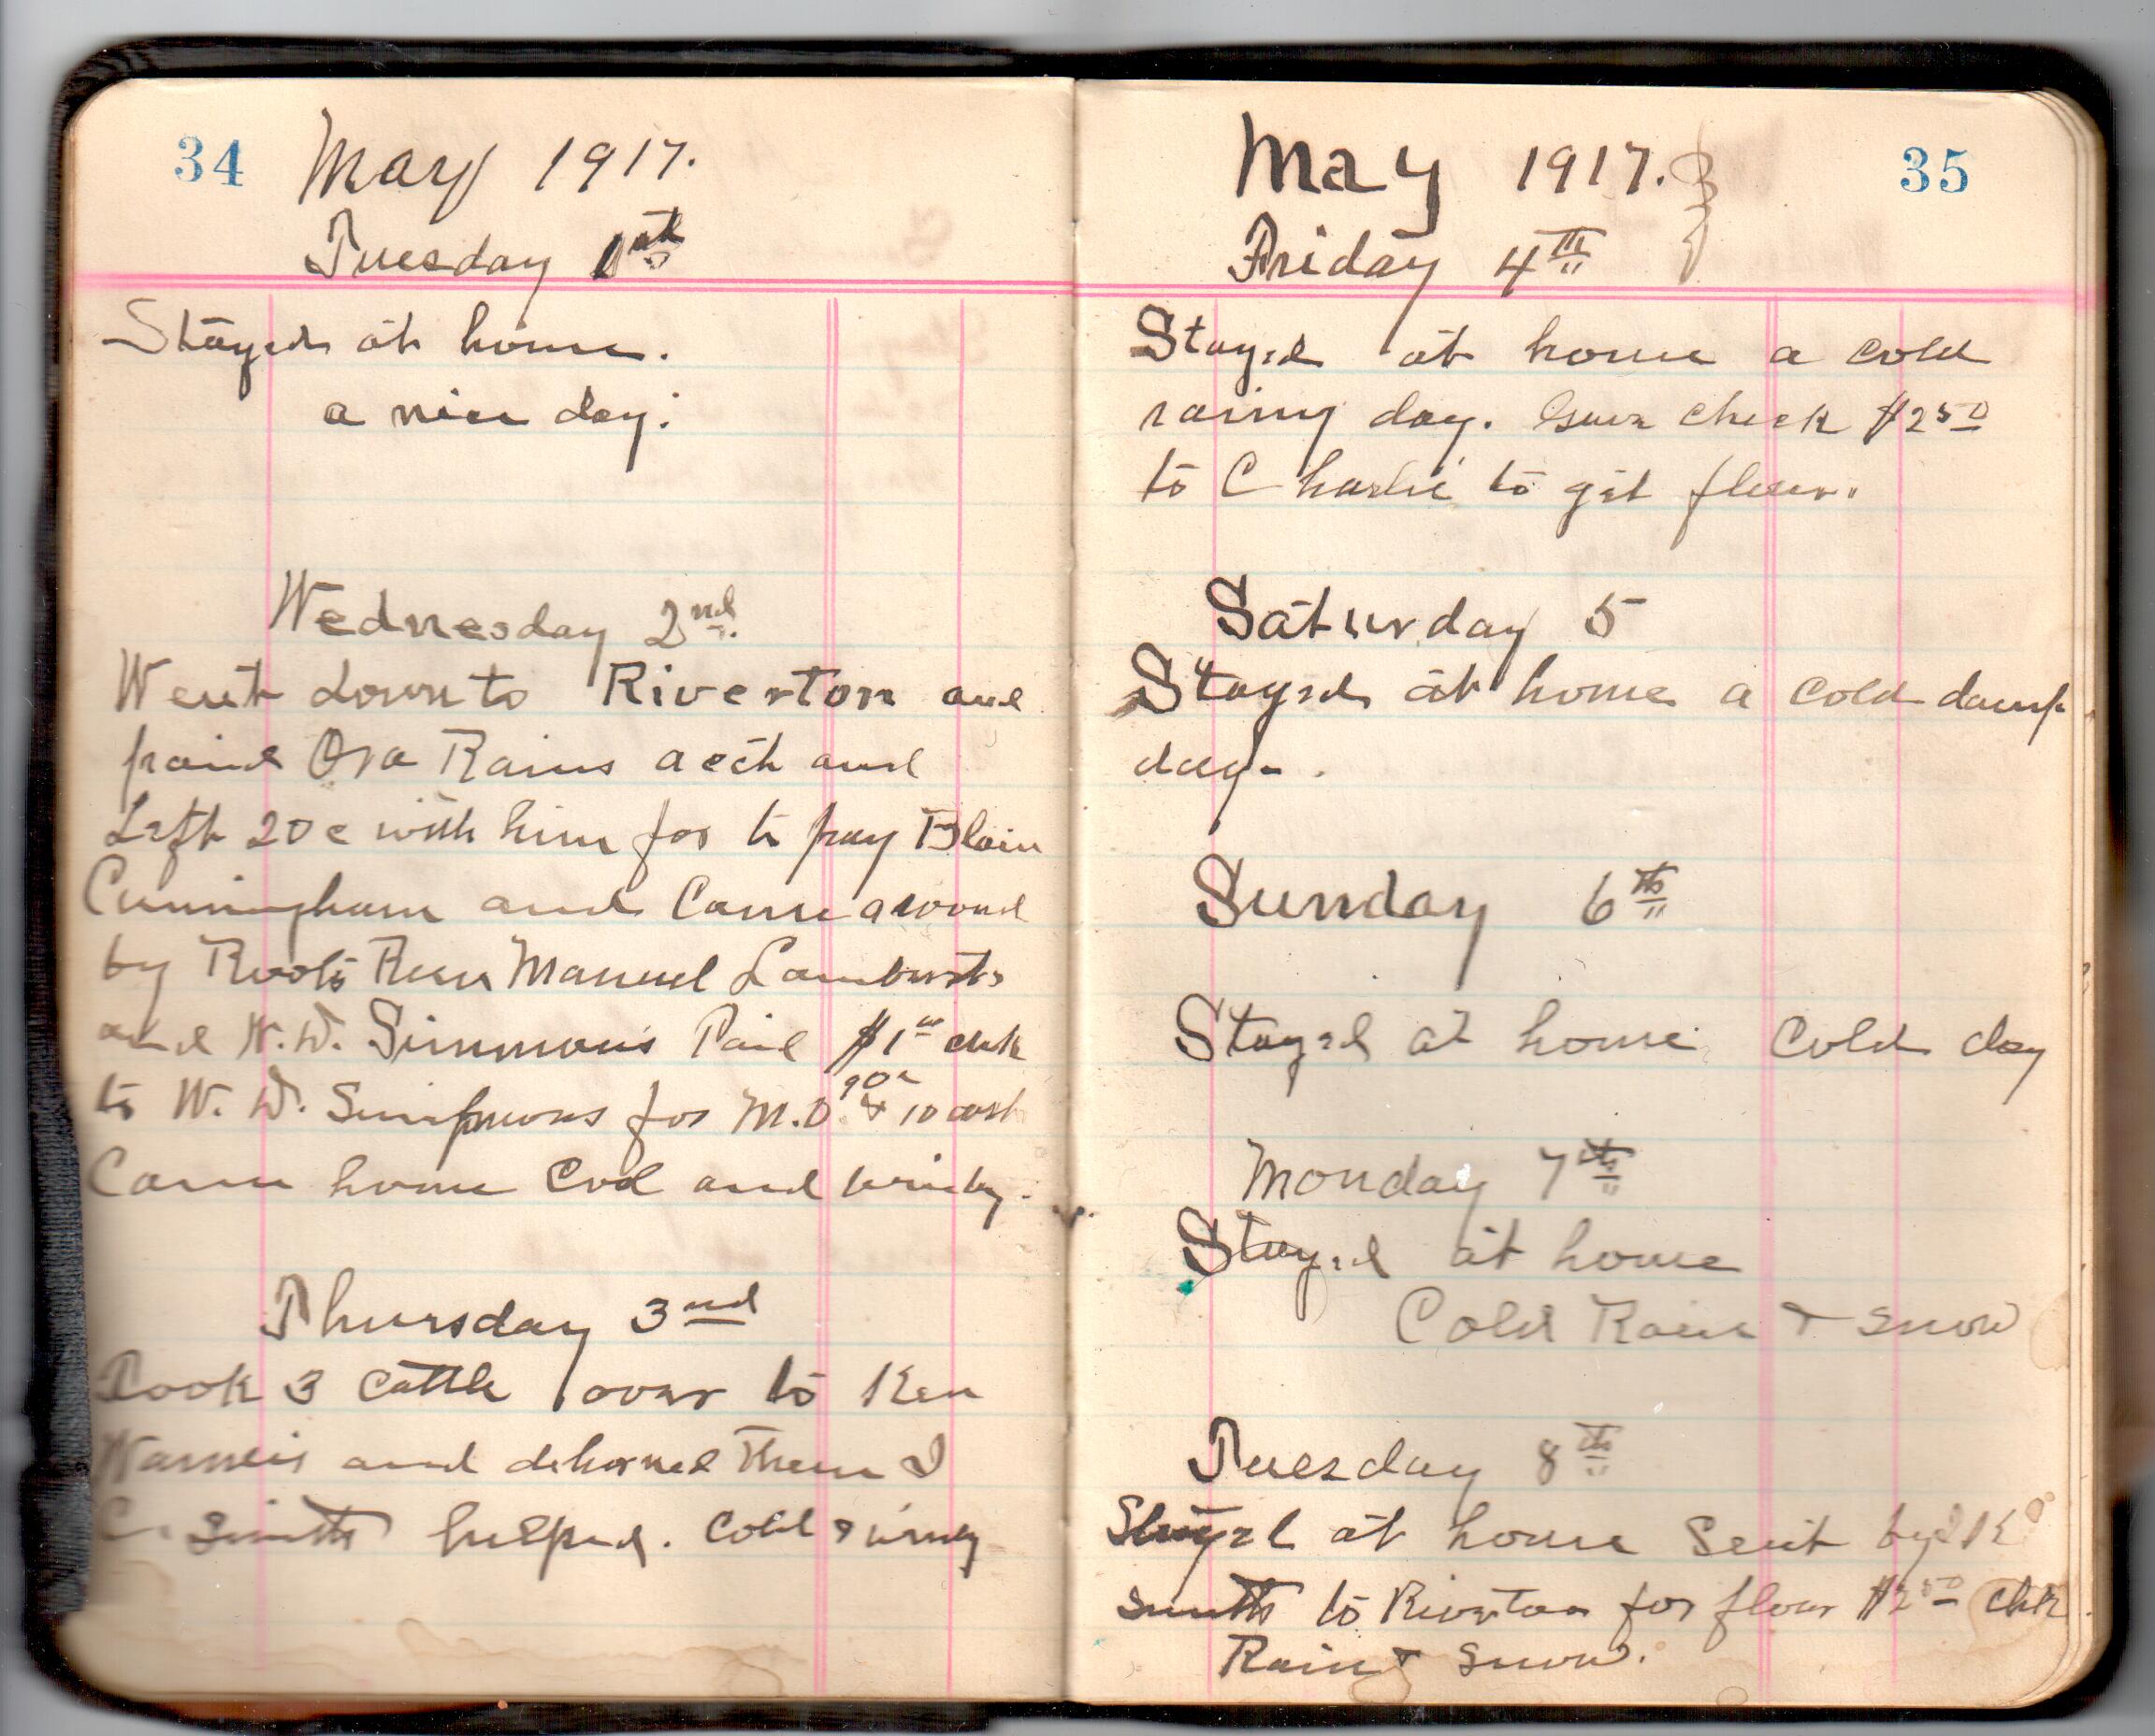 34 May 1917.
Tuesday 1st
Stayed at home.
a nice day.
Wednesday 2nd.
Went down to Riverton and
paid Ora Rains acct and
Left 20c with him for to pay Blain
Cunningham and Came around
by Roots Run Manuel Lamberts
and W.W. Simmons Paid $1 chk
to W. W. Simpmons for M.O. 90c & 10 cash
Came home Cod and windy.
Thursday 3nd
Took 3 cattle over to Ken
Warners and dehorned Them
C. Smith helped. Cold & windy
May 1917. 35
Friday 4th
Stayed at home a cold
rainy day. Gave check $2 50
to Charlie to git flour.
Saturday 5
Stayed at home a cold damp
day.
Sunday 6th
Stayed at home Cold day
Monday 7th
Stayed at home
Cold Rain & snow
Tuesday 8th
Stayed at home Sent by
Smith to Riverton for flour $2 50 chk
Rain & snow.